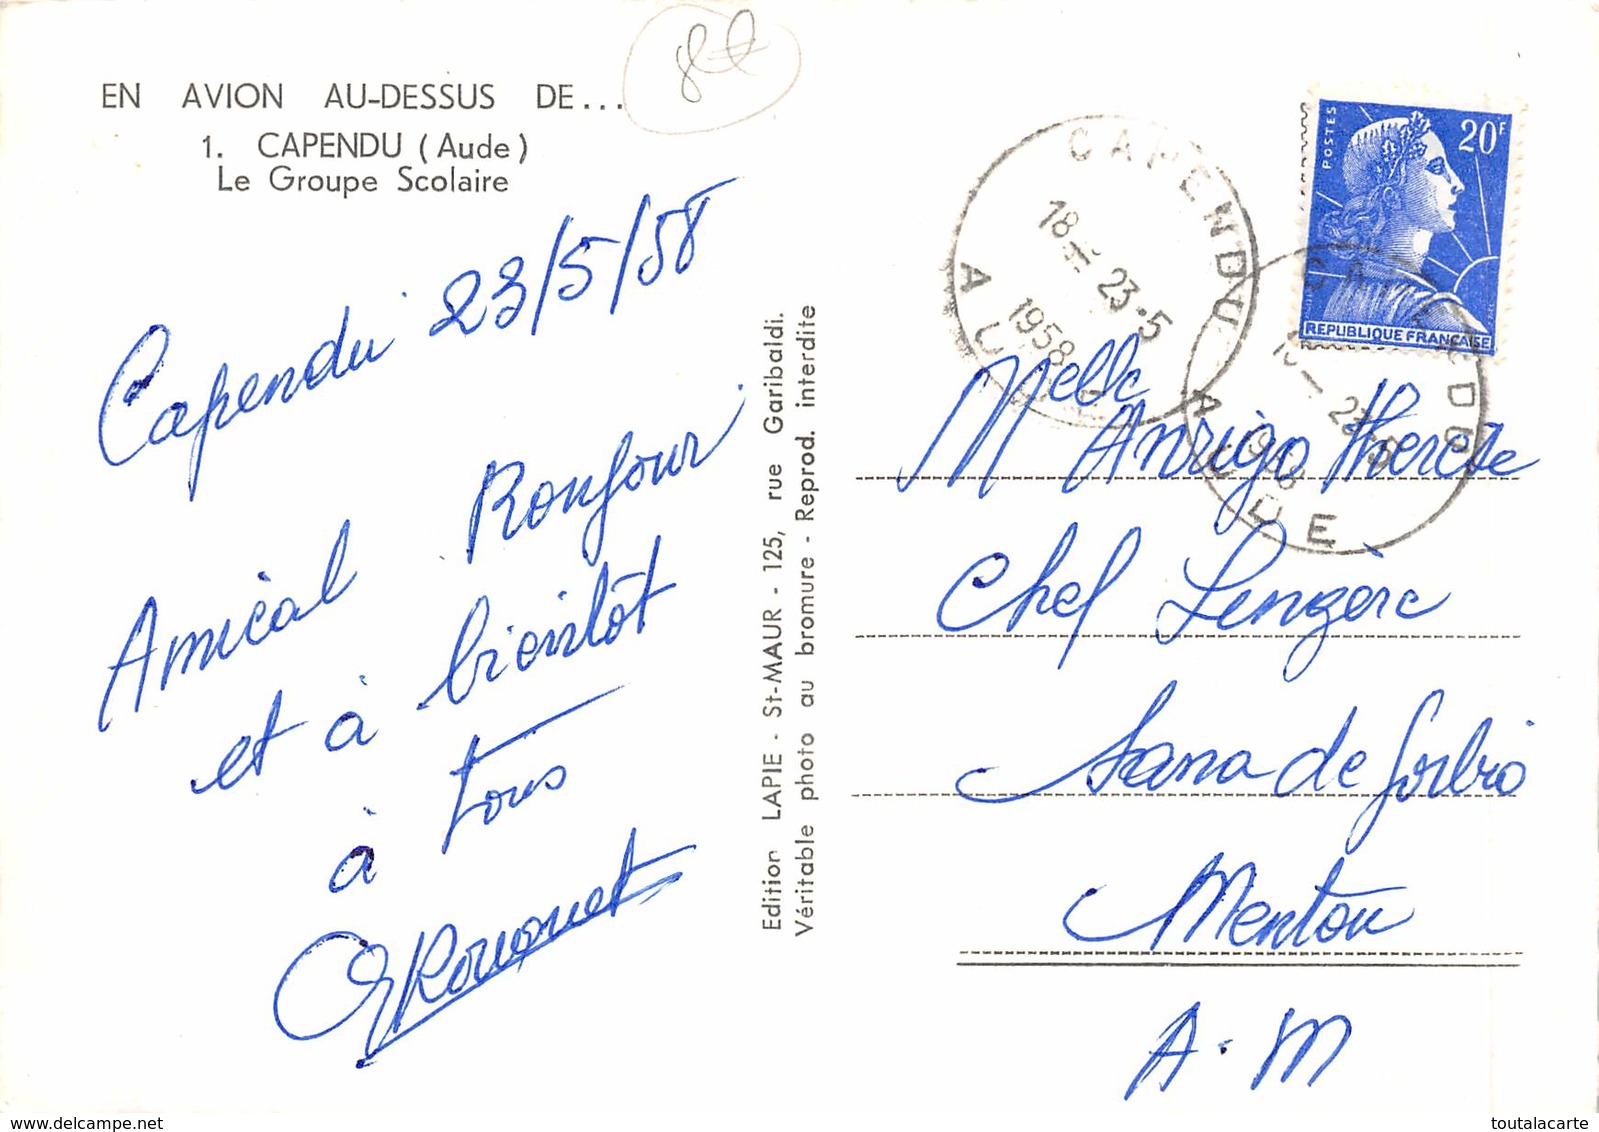 EN AVION AU-DESSUS DE...
1. CAPENDU (Aude)
Le Groupe Scolaire
Capendu 23/5/58
Amical Bonjour
et à bientôt
à tous
Rouquet
Edition LAPIE - St-MAUR - 125, rue Garibaldi.
Véritable photo au bromure - Reprod. interdite
CAPENDU
18 H. 23-5
1958
AUDE
POSTES
20F
REPUBLIQUE FRANCAISE
CAPENDU
18 - 23-5
1958
AUDE
Melle Anrigo Therese
Chef Lingère
Sana de Gorbio
Menton
A.M
www.delcampe.net
toutalacarte